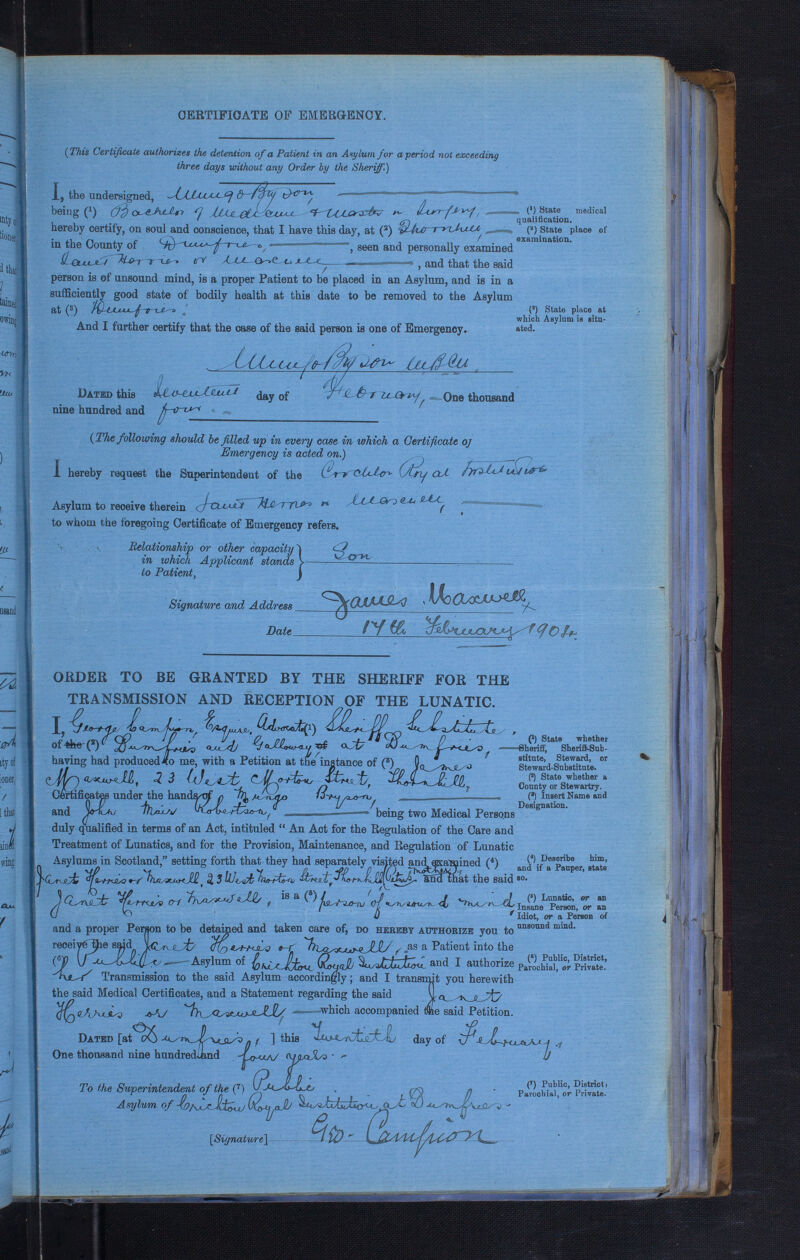 CERTIFICATE OF EMERGENCY.
(This Certificate authorizes the detention of a Patient in an Asylum for a period not exceeding
three days without any Order by the Sheriff.)
I, the undersigned, Mungo Bryson,
being (¹) Bachelor of Medicine & Master in Surgery, (¹) State medical qualification.
hereby certify, on soul and conscience, that I have this day, at (²) Thornhill, (²) State place of examination.
in the County of Dumfries, seen and personally examined
Janet Herries or Maxwell, and that the said
person is of unsound mind, is a proper Patient to be placed in an Asylum, and is in a
sufficiently good state of bodily health at this date to be removed to the Asylum
at (³) Dumfries. (³) State place at which Asylum is situated.
And I further certify that the case of the said person is one of Emergency.
Mungo Bryson MB CM
DATED this Seventeenth day of February, One thousand
nine hundred and four
(The following should be filled up in every case in which a Certificate of
Emergency is acted on.)
I hereby request the Superintendent of the Crichton Royal Institution
Asylum to receive therein Janet Herries or Maxwell
to whom the foregoing Certificate of Emergency refers.
Relationship or other capacity
in which Applicant stands
to Patient, Son
Signature and Address James Maxwell
Date 17th February 1904
ORDER TO BE GRANTED BY THE SHERIFF FOR THE
TRANSMISSION AND RECEPTION OF THE LUNATIC.
I, George Campion, Esquire, Advocate (¹) Sheriff Substitute,
of the (²) Dumfries and Galloway at Dumfries, (¹) State whether Sheriff, Sheriff-Substitute, Steward, or Steward-Substitute.
having had produced to me, with a Petition at the instance of (³) James
Maxwell, 23 West Morton Street, Thornhill, (²) State whether a County or Stewartry.
Certificates under the hands of Mungo Bryson, (³) Insert Name and Designation.
and John Mair Robertson, being two Medical Persons
duly qualified in terms of an Act, intituled "An Act for the Regulation of the Care and
Treatment of Lunatics, and for the Provision, Maintenance, and Regulation of Lunatic
Asylums in Scotland," setting forth that they had separately visited and examined (⁴) (⁴) Describe him, and if a Pauper, state so.
Janet Herries or Maxwell, 23 West Morton Street, Thornhill mother and that the said
Janet Herries or Maxwell, is a (⁵) person of unsound mind (⁵) Lunatic, or an Insane Person, or an Idiot, or a Person of unsound mind.
and a proper Person to be detained and taken care of, DO HEREBY AUTHORIZE YOU to
receive the said Janet Herries or Maxwell, as a Patient into the
(⁶) Public Asylum of Crichton Royal Institution and I authorize (⁶) Public, District, Parochial, or Private.
her Transmission to the said Asylum accordingly; and I transmit you herewith
the said Medical Certificates, and a Statement regarding the said Janet
Herries or Maxwell, which accompanied the said Petition.
DATED [at Dumfries, ] this Twentieth day of February,
One thousand nine hundred and four years.
To the Superintendent of the (⁷) Public (⁷) Public, District, Parochial, or Private.
Asylum of Crichton Royal Institution, at Dumfries
[Signature] Geo. Campion